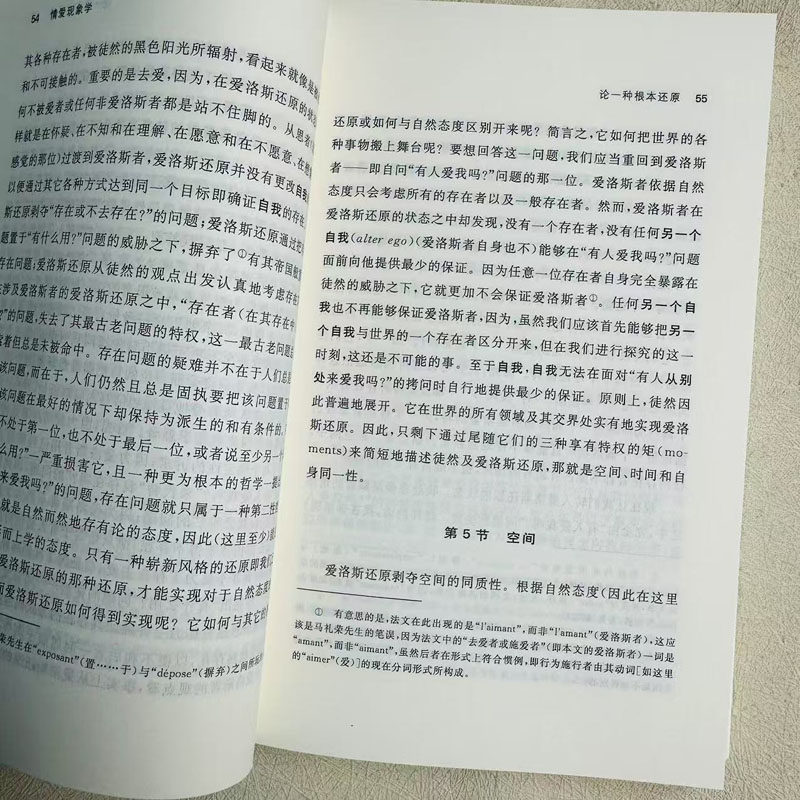 54 情爱现象学
其各种存在者，被徒然的黑色阳光所辐射，看起来就像是
和不可接触的。重要的是去爱，因为，在爱洛斯还原的状
何不被爱者或任何非爱洛斯者都是站不住脚的。从思者
样就是在怀疑、在不知和在理解、在愿意和在不愿意、在
感觉的那位）过渡到爱洛斯者，爱洛斯还原并没有更改自我
以便通过其它各种方式达到同一个目标即确证自我的存在
斯还原剥夺“存在或不去存在？”的问题；爱洛斯还原通过把
题置于“有什么用？”问题的威胁之下，摒弃了①有其帝国
存在问题；爱洛斯还原从徒然的观点出发认真地考虑存在
在涉及爱洛斯者的爱洛斯还原之中，“存在者（在其存在中
？”的问题，失去了其最古老问题的特权，这一最古老问题
者但总是未被命中。存在问题的疑难并不在于人们总
该问题，而在于，人们仍然且总是固执要把该问题置于
该问题在最好的情况下却保持为派生的和有条件的，
不处于第一位，也不处于最后一位，或者说至少另一个
么用？”一严重损害它，且一种更为根本的哲学一
来爱我吗？”的问题，存在问题就只属于一种第二性
就是自然而然地存有论的态度，因此（这里至少）
而上学的态度。只有一种崭新风格的还原即我们
爱洛斯还原的那种还原，才能实现对于自然态度
而爱洛斯还原如何得到实现呢？它如何与其它的
先生在“exposant”（置……于）与“dépose”（摒弃）之间
论一种根本还原 55
还原或如何与自然态度区别开来呢？简言之，它如何把世界的各
种事物搬上舞台呢？要想回答这一问题，我们应当重回到爱洛斯
者——即自问“有人爱我吗？”问题的那一位。爱洛斯者依据自然
态度只会考虑所有的存在者以及一般存在者。然而，爱洛斯者在
爱洛斯还原的状态之中却发现，没有一个存在者，没有任何另一个
自我(alter ego)（爱洛斯者自身也不）能够在“有人爱我吗？”问题
面前向他提供最少的保证。因为任意一位存在者自身完全暴露在
徒然的威胁之下，它就更加不会保证爱洛斯者①。任何另一个自
我也不再能够保证爱洛斯者，因为，虽然我们应该首先能够把另一
个自我与世界的一个存在者区分开来，但在我们进行探究的这一
时刻，这还是不可能的事。至于自我，自我无法在面对“有人从别
处来爱我吗？”的拷问时自行地提供最少的保证。原则上，徒然因
此普遍地展开。它在世界的所有领域及其交界处实有地实现爱洛
斯还原。因此，只剩下通过尾随它们的三种享有特权的矩(mo-
ments)来简短地描述徒然及爱洛斯还原，那就是空间、时间和自
身同一性。
第5节 空间
爱洛斯还原剥夺空间的同质性。根据自然态度（因此在这里
① 有意思的是，法文在此出现的是“l'aimant”，而非“l'amant”（爱洛斯者），这应
该是马礼荣先生的笔误，因为法文中的“去爱者或施爱者”（即本文的爱洛斯者）一词是
“amant”，而非“aimant”，虽然后者在形式上符合惯例，即行为施行者由其动词[如这里
的“aimer”（爱）]的现在分词形式所构成。